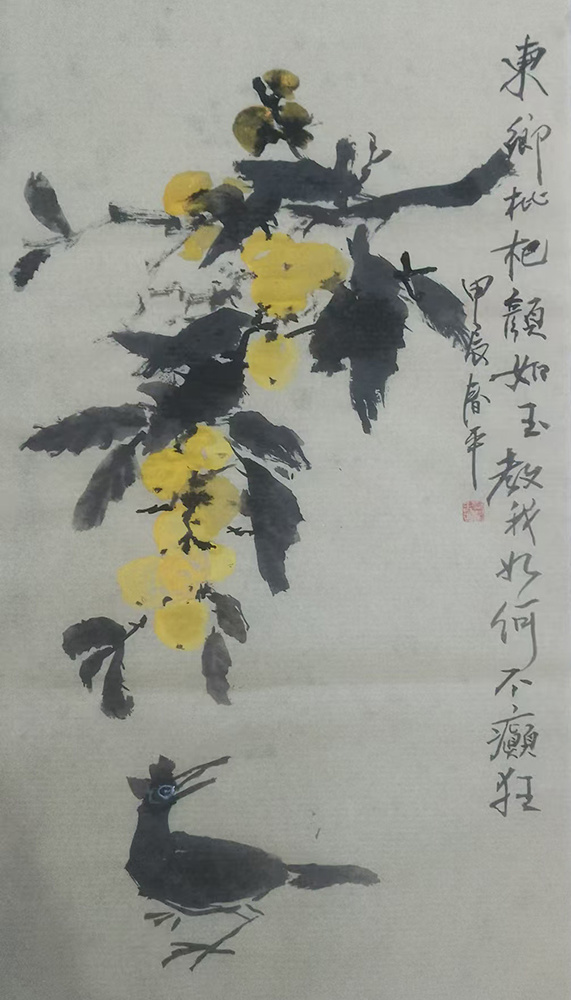 東鄉枇杷顏如玉教我如何不癲狂
甲辰春平